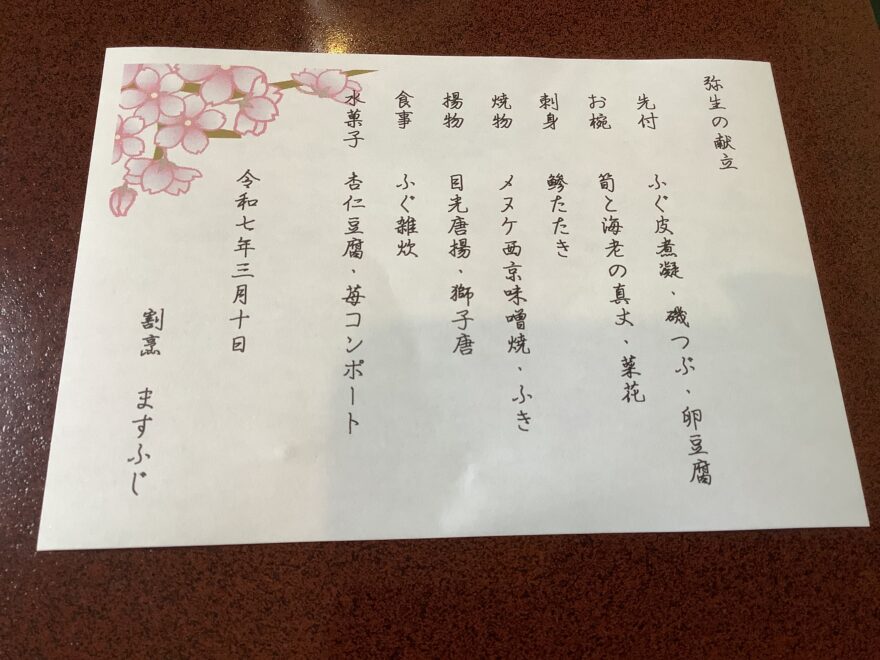 弥生の献立
先付 ふぐ皮煮凝、磯つぶ、卵豆腐
お椀 筍と海老の真丈、菜花
刺身 鰺たたき
焼物 メヌケ西京味噌焼、ふき
揚物 目光唐揚、獅子唐
食事 ふぐ雑炊
水菓子 杏仁豆腐、苺コンポート
令和七年三月十日
割烹 ますふじ